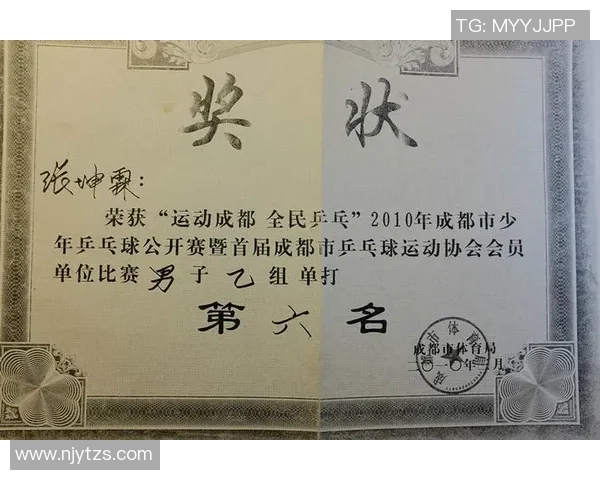 TG: MYYJJPP
奖 状
张坤霖：
荣获“运动成都 全民乒乓”2010年成都市少
年乒乓球公开赛暨首届成都市乒乓球运动协会会员
单位比赛 男 子 乙 组 单打
第 六 名
成都市体育局
二〇一〇年 月
www.njytzs.com